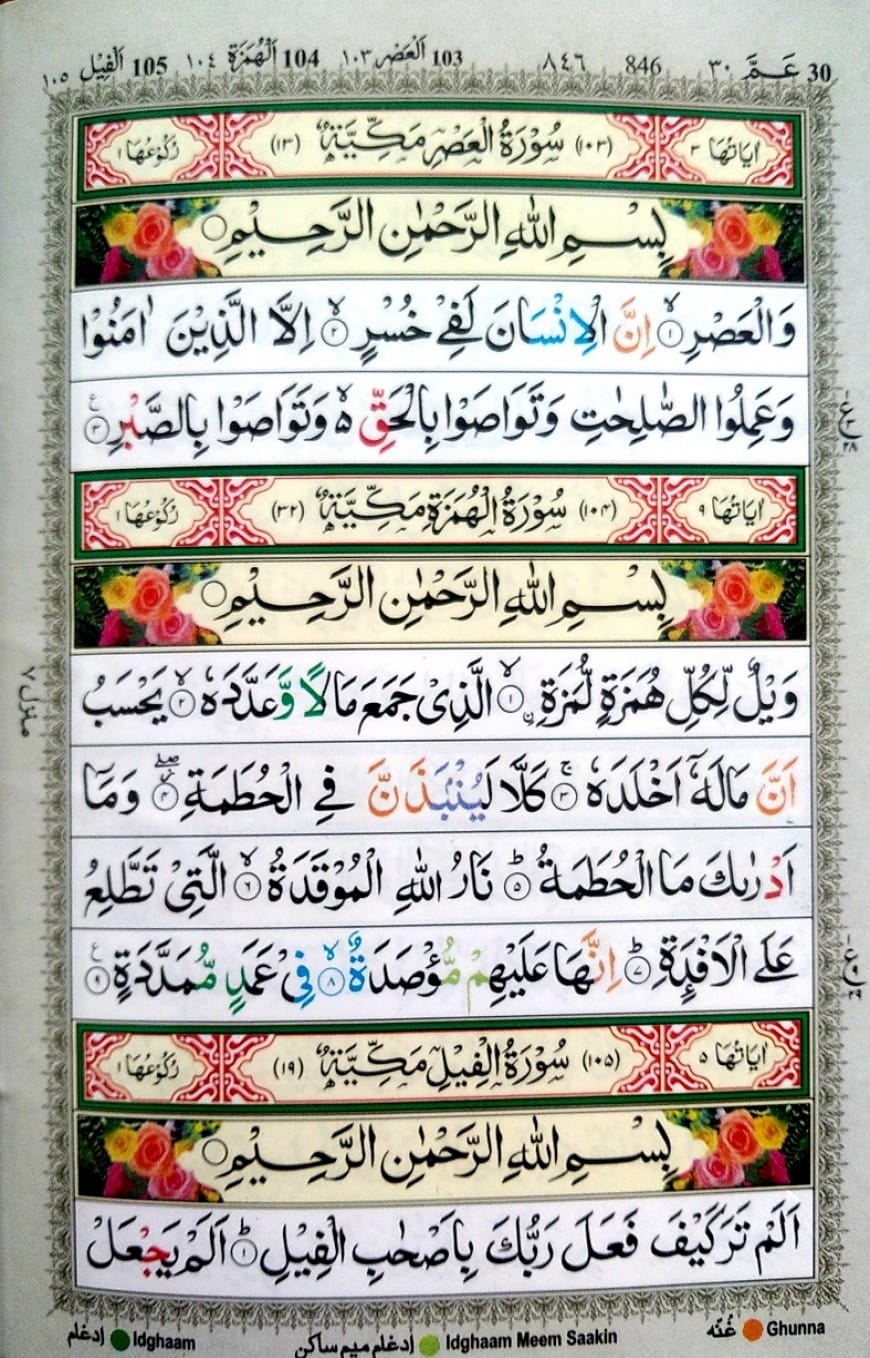 30 عَـمَّ ٣٠ 846 ٨٤٦ 103 اَلْعَصْر ١٠٣ 104 اَلْهُمَزَة ١٠٤ 105 اَلْفِيْل ١٠٥
اٰيَاتُهَا ٣ (١٠٣) سُوْرَةُ الْعَصْرِ مَكِّيَّةٌ (١٣) رُكُوْعُهَا ١
بِسْمِ اللّٰهِ الرَّحْمٰنِ الرَّحِيْمِ
وَالْعَصْرِ ۙ﴿١﴾ اِنَّ الْاِنْسَانَ لَفِيْ خُسْرٍ ۙ﴿٢﴾ اِلَّا الَّذِيْنَ اٰمَنُوْا
وَعَمِلُوا الصّٰلِحٰتِ وَتَوَاصَوْا بِالْحَقِّ ۙ۬ وَتَوَاصَوْا بِالصَّبْرِ ﴿٣﴾ ع
ع ٢٨
اٰيَاتُهَا ٩ (١٠٤) سُوْرَةُ الْهُمَزَةِ مَكِّيَّةٌ (٣٢) رُكُوْعُهَا ١
بِسْمِ اللّٰهِ الرَّحْمٰنِ الرَّحِيْمِ
وَيْلٌ لِّكُلِّ هُمَزَةٍ لُّمَزَةِ ۙ﴿١﴾ ۨالَّذِيْ جَمَعَ مَالًا وَّعَدَّدَهٗ ۙ﴿٢﴾ يَحْسَبُ
منزل ٧
اَنَّ مَالَهٗٓ اَخْلَدَهٗ ۚ﴿٣﴾ كَلَّا لَيُنْۢبَذَنَّ فِي الْحُطَمَةِ ۖ﴿٤﴾ وَمَآ
اَدْرٰىكَ مَا الْحُطَمَةُ ؕ﴿٥﴾ نَارُ اللّٰهِ الْمُوْقَدَةُ ۙ﴿٦﴾ الَّتِيْ تَطَّلِعُ
عَلَى الْاَفْـِٕدَةِ ؕ﴿٧﴾ اِنَّهَا عَلَيْهِمْ مُّؤْصَدَةٌ ۙ﴿٨﴾ فِيْ عَمَدٍ مُّمَدَّدَةٍ ﴿٩﴾ ع
ع ٢٩
اٰيَاتُهَا ٥ (١٠٥) سُوْرَةُ الْفِيْلِ مَكِّيَّةٌ (١٩) رُكُوْعُهَا ١
بِسْمِ اللّٰهِ الرَّحْمٰنِ الرَّحِيْمِ
اَلَمْ تَرَ كَيْفَ فَعَلَ رَبُّكَ بِاَصْحٰبِ الْفِيْلِ ؕ﴿١﴾ اَلَمْ يَجْعَلْ
Ghunna غُنّه Idghaam Meem Saakin إدغام ميم ساكن Idghaam إدغام